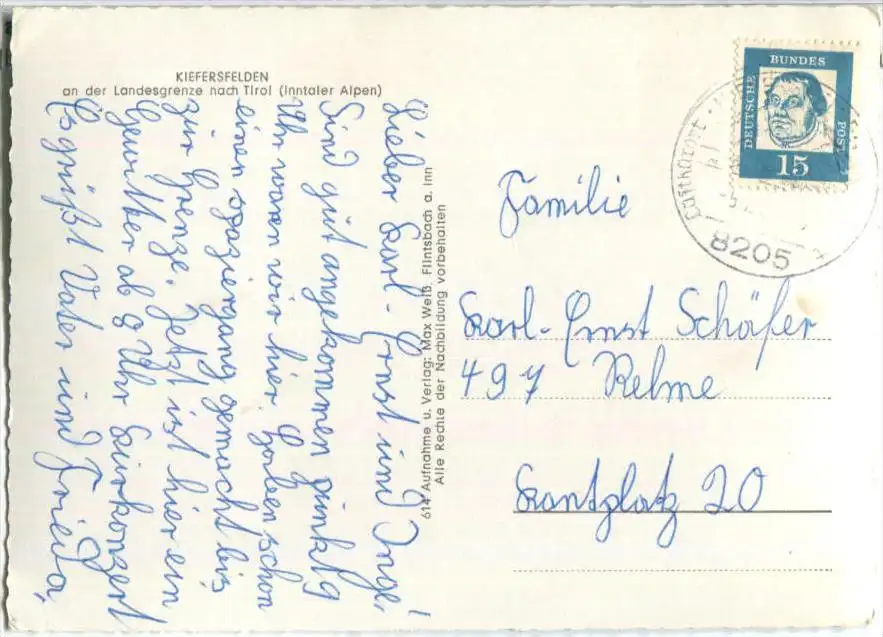 KIEFERSFELDEN
an der Landesgrenze nach Tirol (Inntaler Alpen)
Lieber Karl-Ernst und Inge!
Sind gut angekommen pünktg
Uhr waren wir hier. Haben schon
einen Spaziergang gemacht bis
zur Grenze. Jetzt ist hier ein
Gewitter ab 8 Uhr Kurkonzert
Es grüßt Vater und Frieda,
614 Aufnahme u. Verlag: Max Weiß, Flintsbach a. Inn
Alle Rechte der Nachbildung vorbehalten
DEUTSCHE
BUNDES
POST
15
Luftkurort
8205
Familie
Karl-Ernst Schäfer
497 Rehme
Kantplatz 20